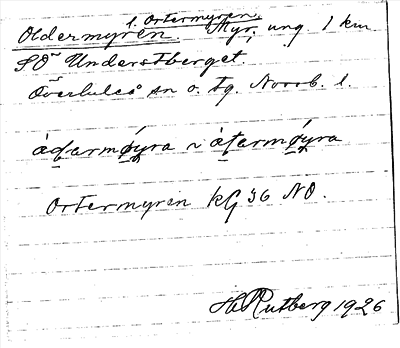 Oldermyren. l. Ortermyren. Myr, ung 1 km.
SÖ Understberget.
Överluleå sn o. tg. Norrb. l.
Ortermyren kG 36 NO.
H Rutberg 1926